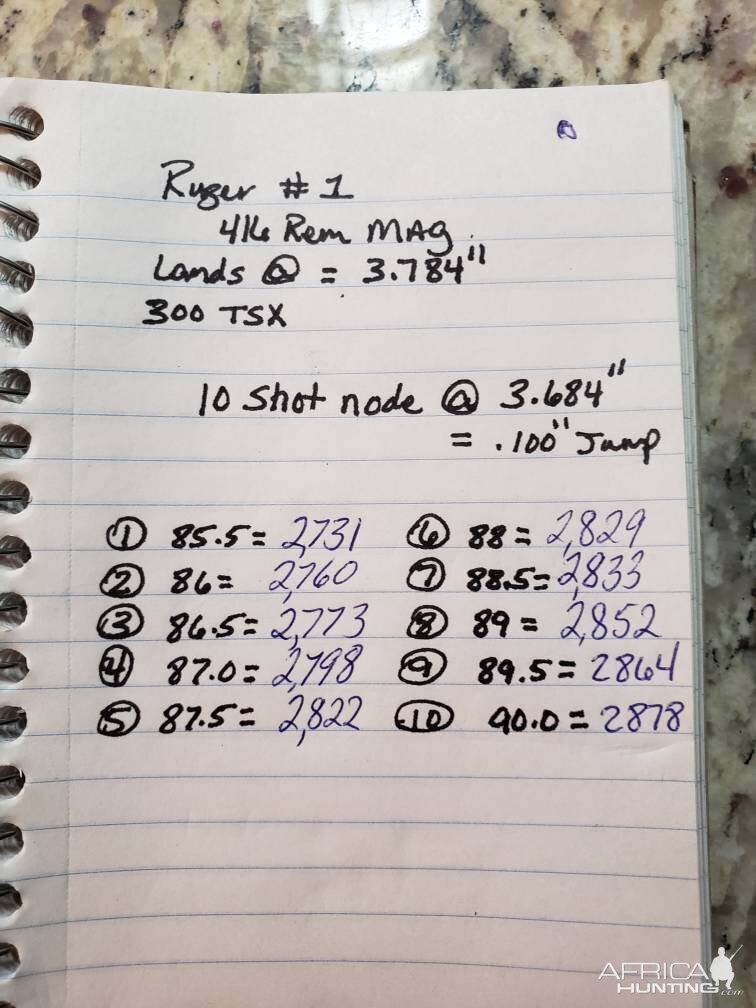 Ruger # 1
416 Rem MAg.
Lands @ = 3.784"
300 TSX
10 Shot node @ 3.684"
= .100" Jump
① 85.5 = 2,731
② 86 = 2,760
③ 86.5 = 2,773
④ 87.0 = 2,798
⑤ 87.5 = 2,822
⑥ 88 = 2,829
⑦ 88.5 = 2,833
⑧ 89 = 2,852
⑨ 89.5 = 2864
⑩ 90.0 = 2878
AFRICA
HUNTING.com